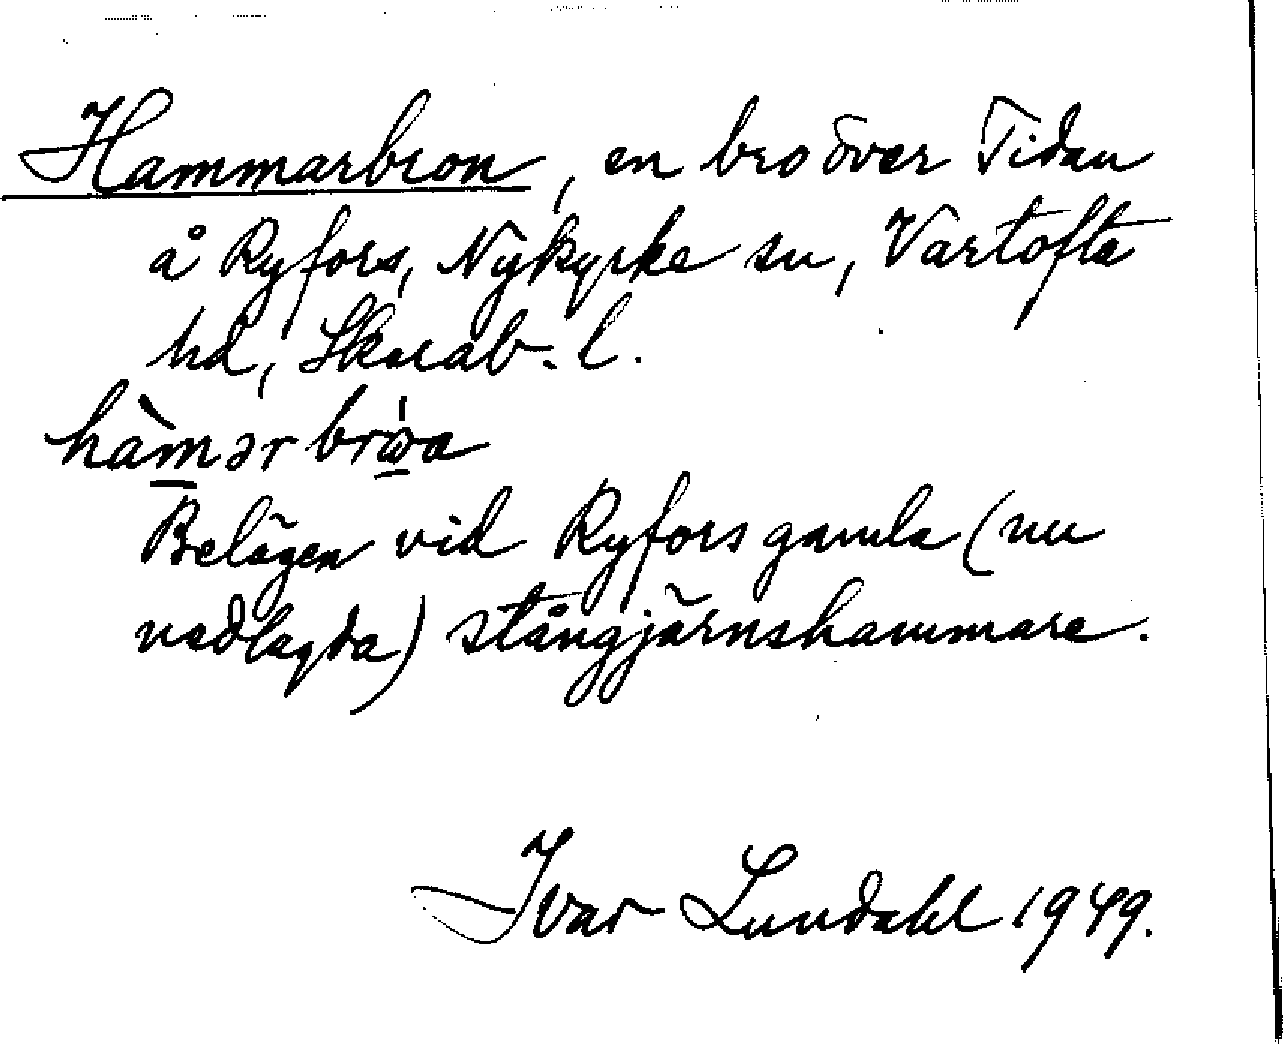 Hammarbron, en bro över Tidan
å Ryfors, Nykyrke sn, Vartofta
hd, Skarab. l.
hàmər
Belägen vid Ryfors gamla (nu
nedlagda) stångjärnshammare.
Ivar Lundahl 1949.